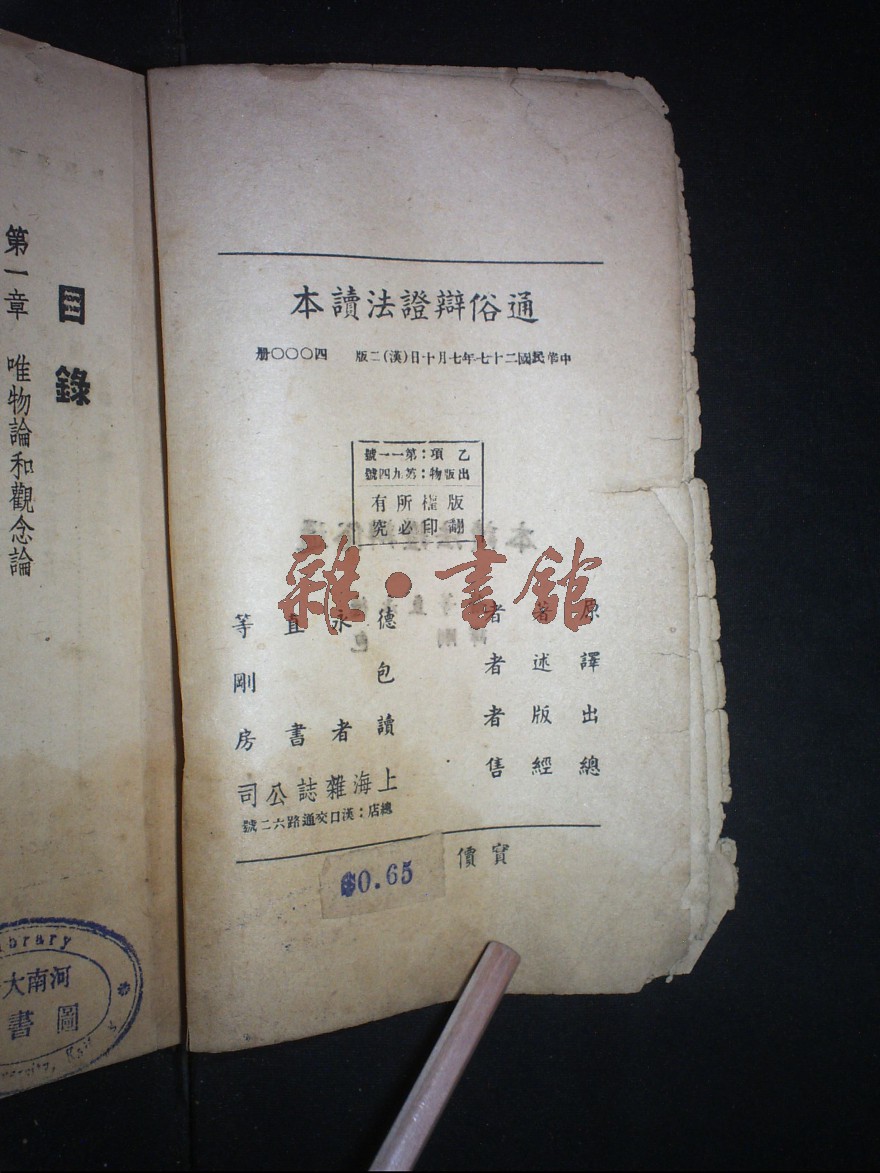 通俗辯證法讀本
中華民國二十七年七月十日(漢)二版 四〇〇〇册
乙項：第一一號
出版物：第九四號
版權所有
翻印必究
雜·書館
原著者 德永直等
譯述者 包剛
出版者 讀者書房
總經售 上海雜誌公司
總店：漢口交通路六二號
實價
$0.65
目錄
第一章 唯物論和觀念論
Library
河南大
圖書